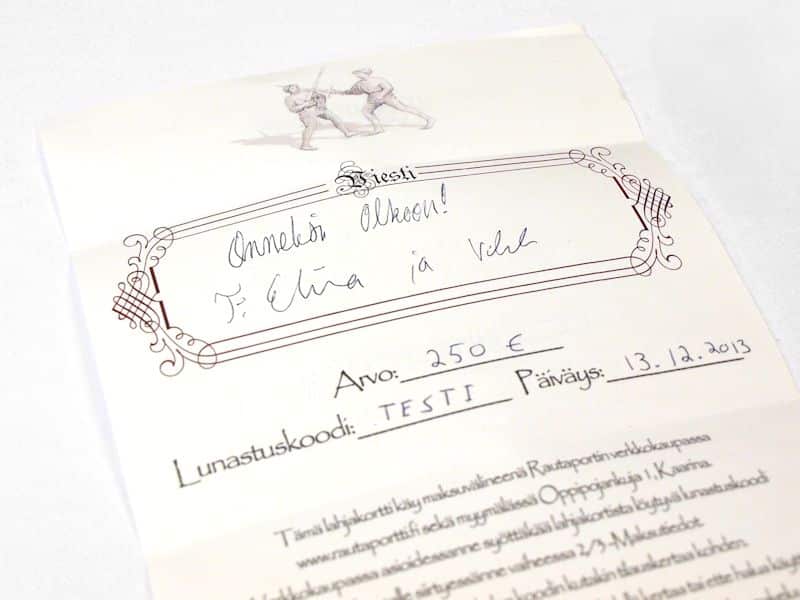 Viesti
Onneksi Olkoon!
T: Elina ja
Arvo: 250 €
Lunastuskoodi: TESTI Päiväys: 13.12.2013
Tämä lahjakortti käy maksuvälineenä Rautaportin verkkokaupassa
www.rautaportti.fi sekä myymälässä Oppipojankuja 1, Kaarina.
Verkkokaupassa asioidessanne syöttäkää lahjakortista löytyvä lunastuskoodi
siirtyessänne vaiheessa 2/3-Maksutiedot.
koodin kutakin tilauskertaa kohden.
kertaa tai ette halua